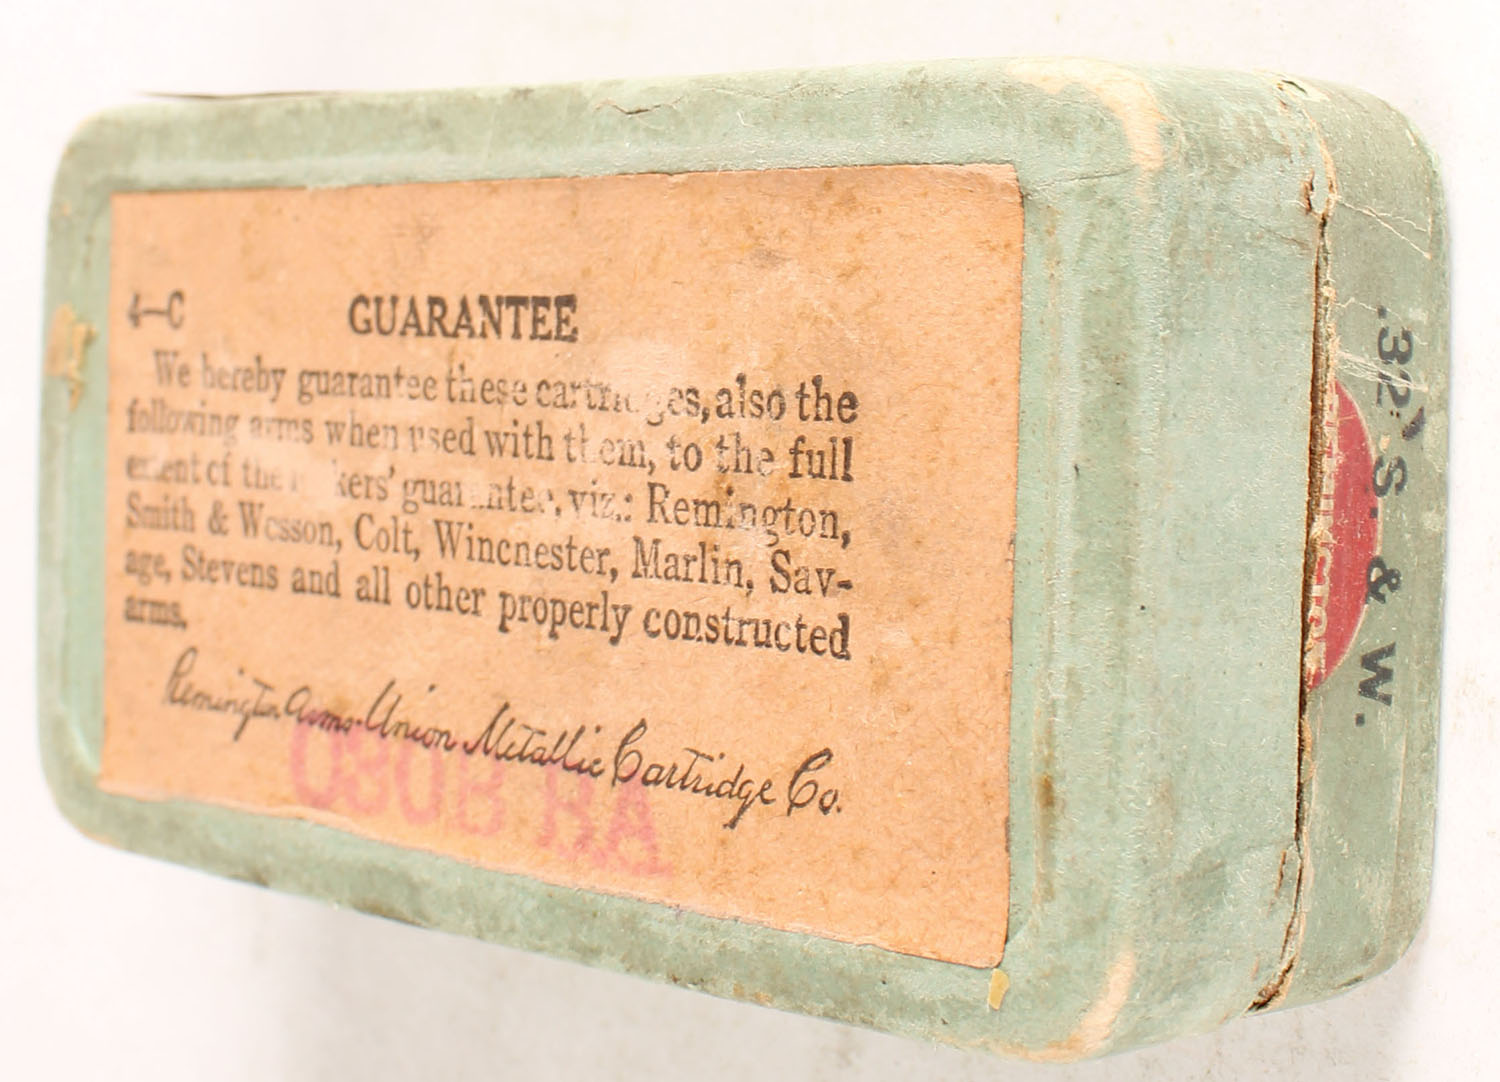 4—C
GUARANTEE
We hereby guarantee these cartridges, also the
following arms when used with them, to the full
extent of the makers' guarantee, viz.: Remington,
Smith & Wesson, Colt, Winchester, Marlin, Sav-
age, Stevens and all other properly constructed
arms.
Remington Arms-Union Metallic Cartridge Co.
.32 S. & W.
REMINGTON